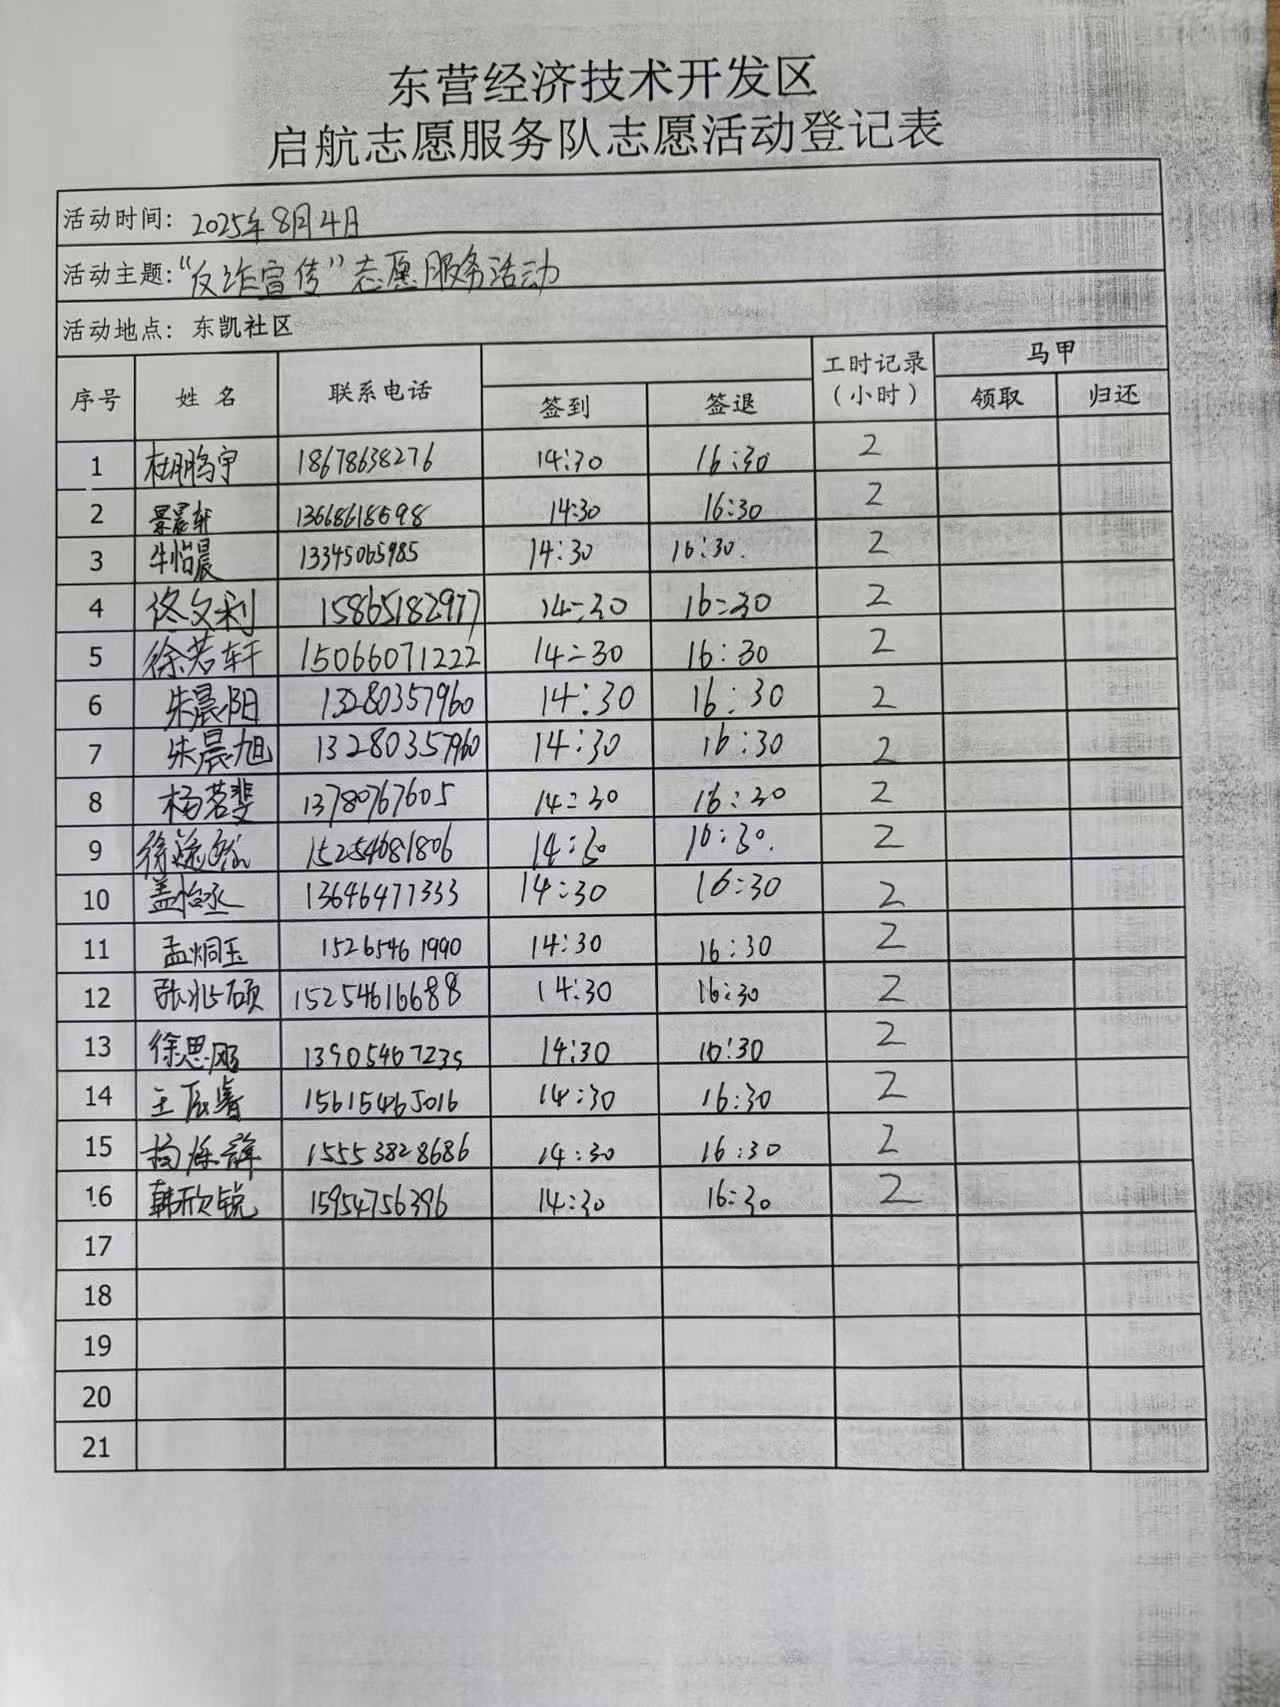 东营经济技术开发区
启航志愿服务队志愿活动登记表
活动时间: 2025年8月4日
活动主题: “反诈宣传”志愿服务活动
活动地点: 东凯社区
序号 姓名 联系电话 签到 签退 工时记录(小时) 马甲 领取 归还
1 杜鹏宇 18678638276 14:30 16:30 2
2 景晨轩 13668618598 14:30 16:30 2
3 牛怡晨 13345065985 14:30 16:30. 2
4 佟文利 15865182977 14:30 16:30 2
5 徐若轩 15066071222 14:30 16:30 2
6 朱晨阳 13280357960 14:30 16:30 2
7 朱晨旭 13280357960 14:30 16:30 2
8 杨茗斐 13780767605 14:30 16:30 2
9 徐 15254681806 14:30 16:30. 2
10 盖怡丞 13646477333 14:30 16:30 2
11 孟炯玉 15265461990 14:30 16:30 2
12 张兆硕 15254616688 14:30 16:30 2
13 徐思 13905467235 14:30 16:30 2
14 王辰睿 15615465016 14:30 16:30 2
15 杨 15553828686 14:30 16:30 2
16 韩欣锐 15954756396 14:30 16:30 2
17
18
19
20
21